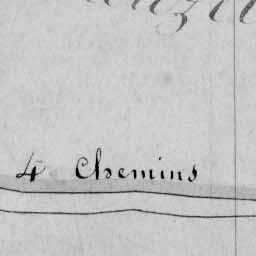 4 Chemins